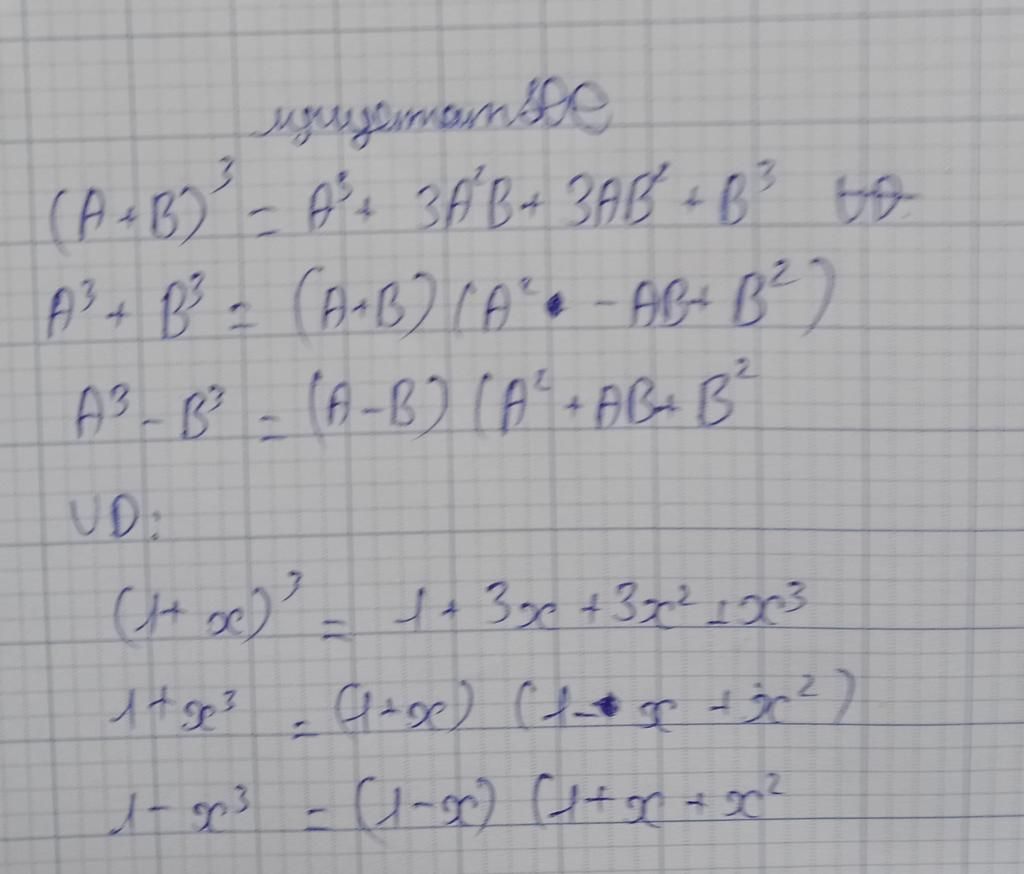 (A+B)³ = A³ + 3A²B + 3AB² + B³
A³ + B³ = (A+B) (A² - AB + B²)
A³ - B³ = (A-B) (A² + AB + B²
VD:
(1+x)³ = 1 + 3x + 3x² + x³
1+x³ = (1+x) (1 - x + x²)
1 - x³ = (1-x) (1+x+x²